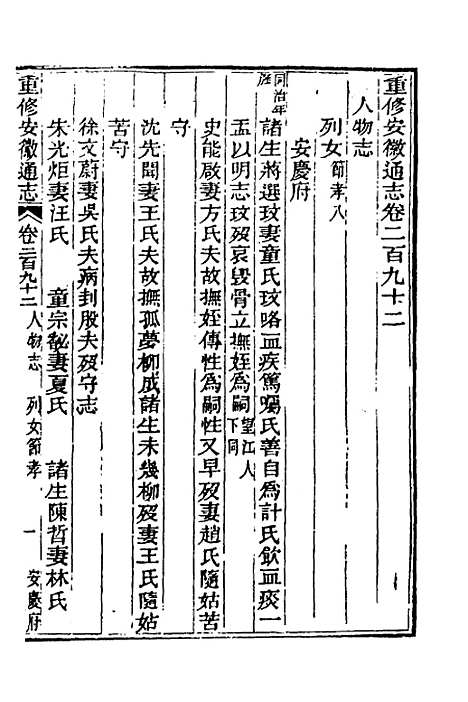 重修安徽通志卷二百九十二
人物志
列女節孝八
安慶府
同治年
旌
諸生蔣選玟妻童氏玟咯血疾篤囑氏善自為計氏飲血痰一
盂以明志玟歿哀毀骨立撫姪為嗣望江人下同
史能啟妻方氏夫故撫姪傳性為嗣性又早歿妻趙氏隨姑苦
守
沈先聞妻王氏夫故撫孤夢柳成諸生未幾柳歿妻王氏隨姑
苦守
徐文蔚妻吳氏夫病刲股夫歿守志
朱光炬妻汪氏 童宗妻夏氏 諸生陳哲妻林氏
重修安徽通志 卷二百九十二 人物志 列女節孝 一 安慶府